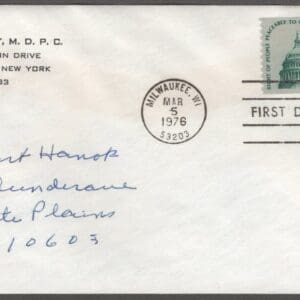 , M. D. P. C.
IN DRIVE
NEW YORK
MILWAUKEE, WI
MAR
5
1976
53203
FIRST D
RIGHT OF PEOPLE PEACEABLY TO
Hanok
Plains
10603